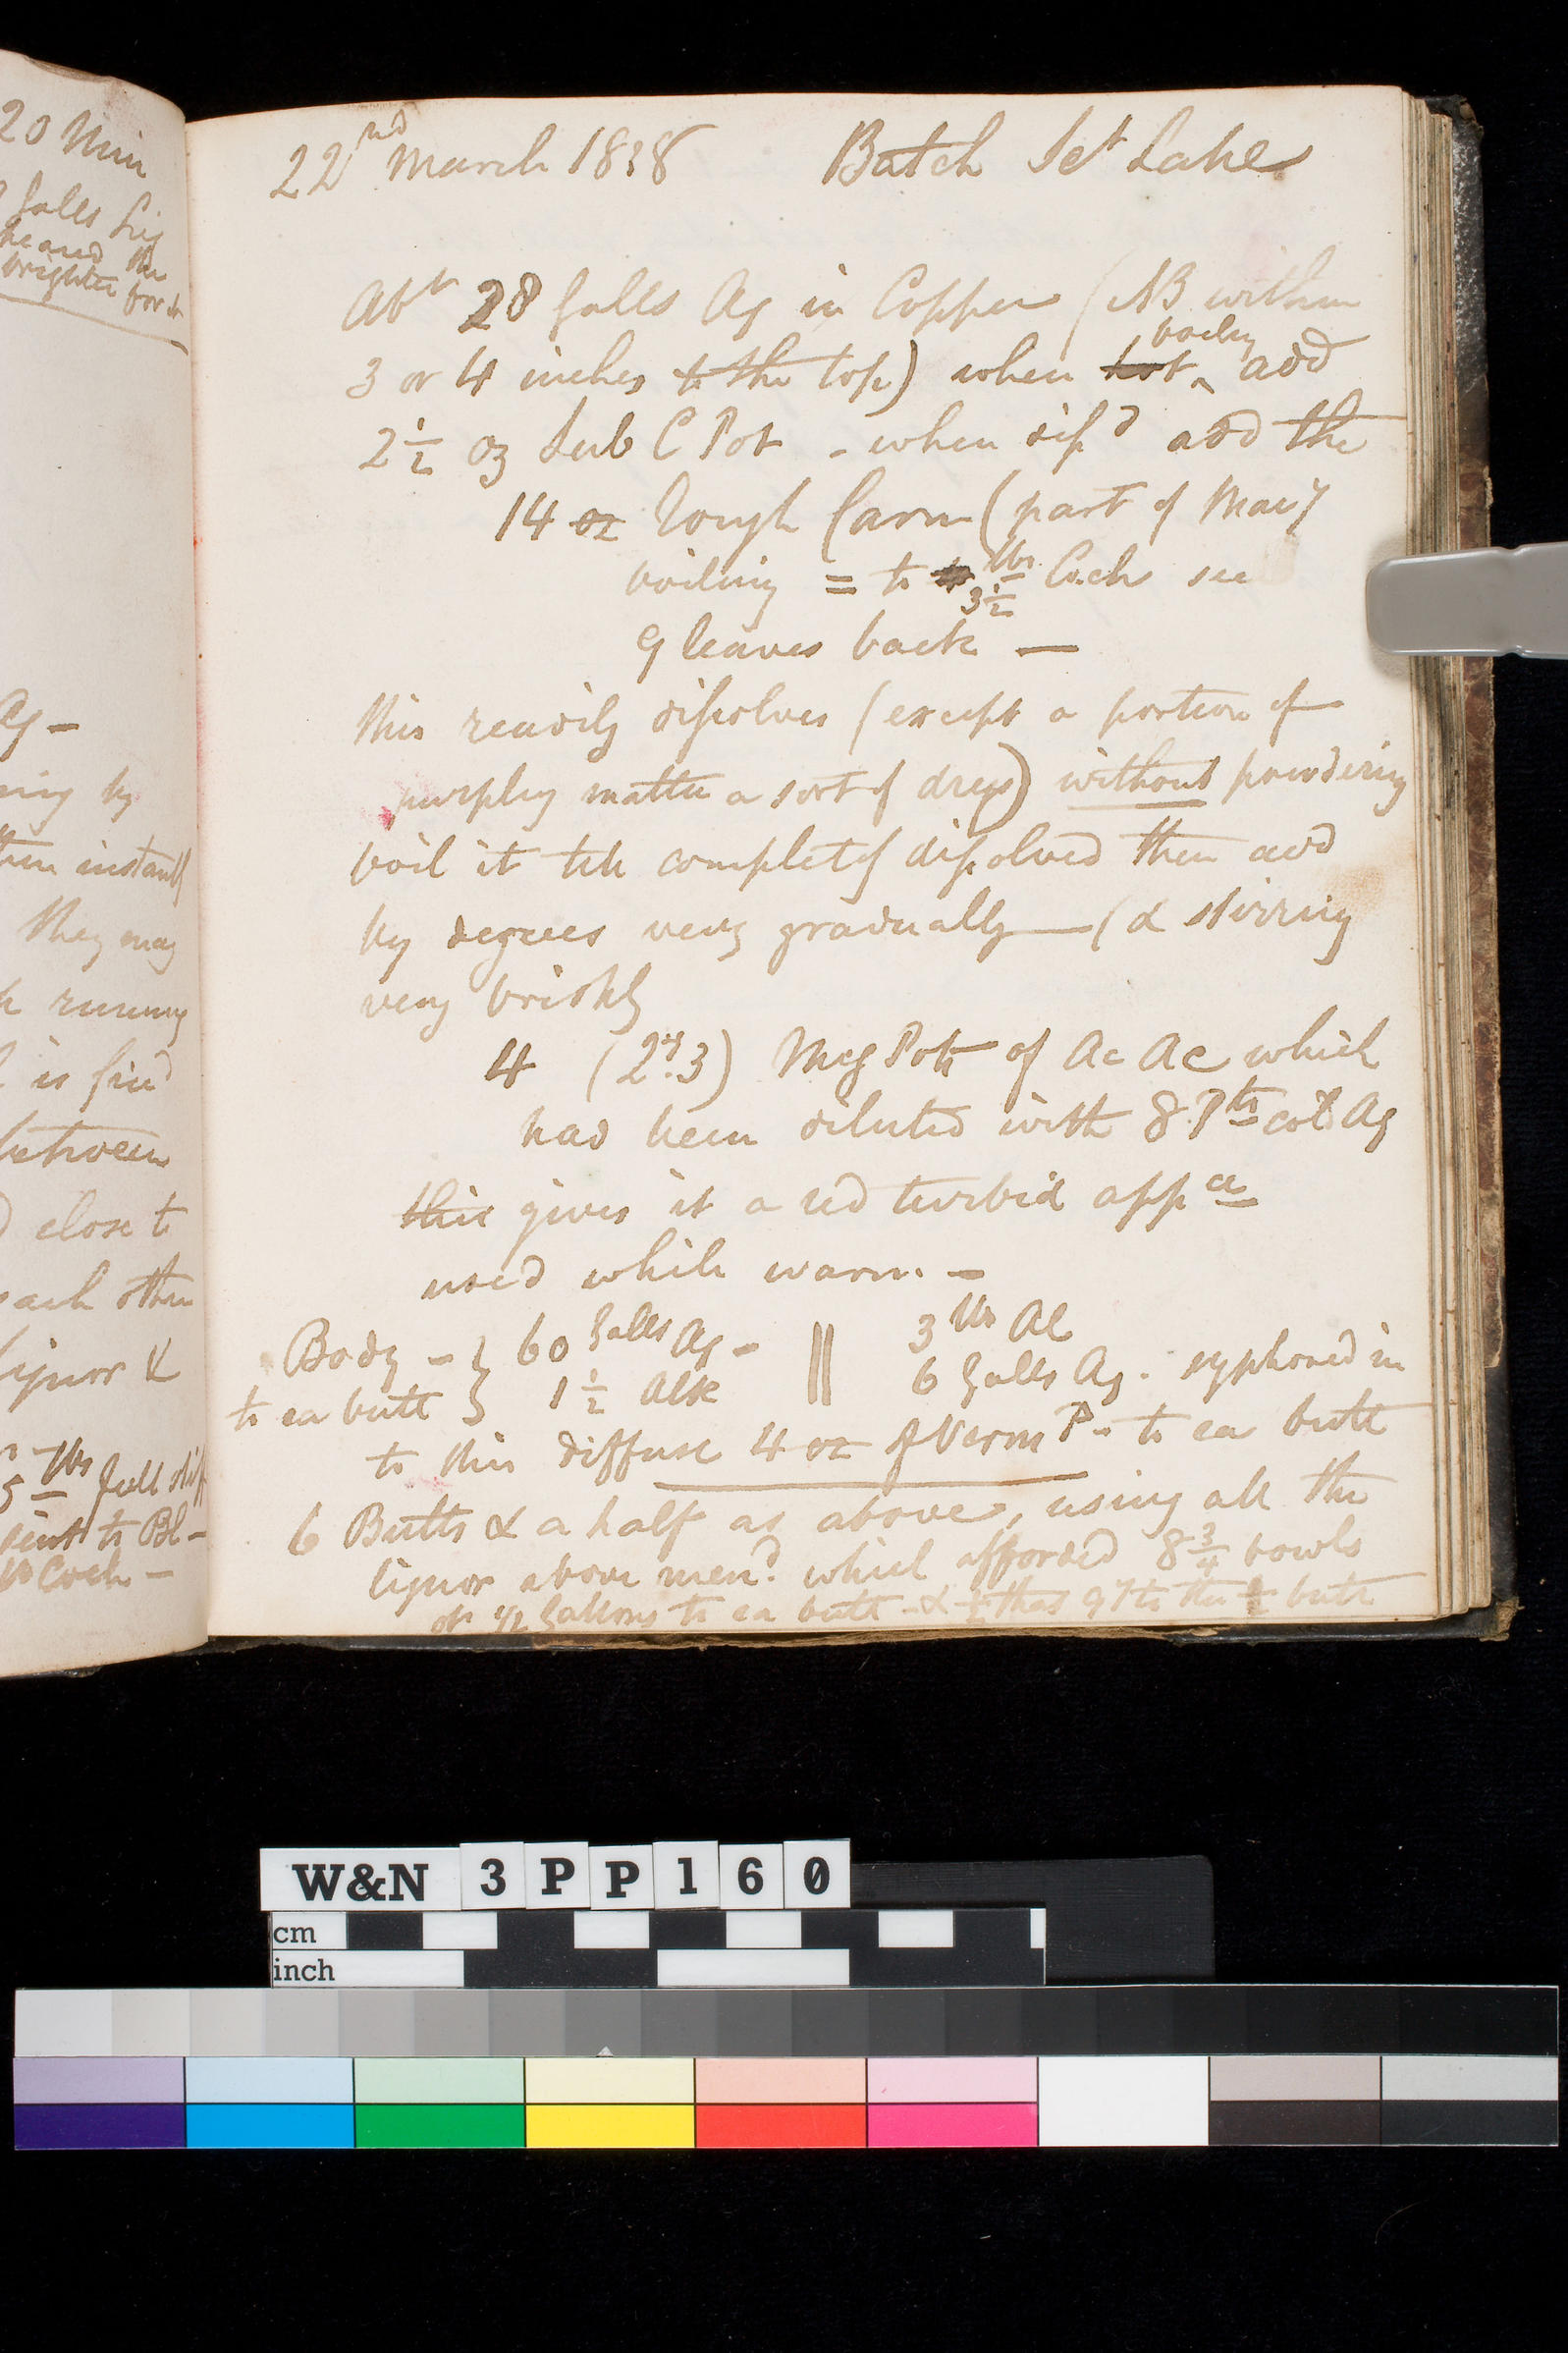 20 Min
galls Liq
he and the
brighter for
Ag -
ing by
then instantly
they may
running
is fin'd
between
close to
each other
liquor &
5 lbs full stiff
sent to Bl -
Coch -
22nd March 1838 Batch Sct Lake
Abt 28 galls Aq in Copper (NB within
3 or 4 inches to the top) when hot boiling add
2½ oz Sub C Pot - when diss'd add the
14 oz rough Carm (part of Mac's
boiling = to 3½ lbs Coch see
9 leaves back —
this readily dissolves (except a portion of
purpley matter a sort of dregs) without powdering
boil it till completely dissolved then add
by degrees very gradually — (& stirring
very briskly
4 (2.3) Meg Pots of Ac Ac which
had been diluted with 8 Pts cold Aq
this gives it a red turbid appce
used while warm. -
Body - } 60 galls Aq - || 3 lbs Al
to ea butt } 1½ Alk 6 galls Aq. syphoned in
to this diffuse 4 oz of Verm P - to ea butt
6 Butts & a half as above, using all the
liquor above men'd which afforded 8¾ bowls
or galloons to ea butt - & ½ that qy to the ½ butt
W&N 3PP160
cm
inch